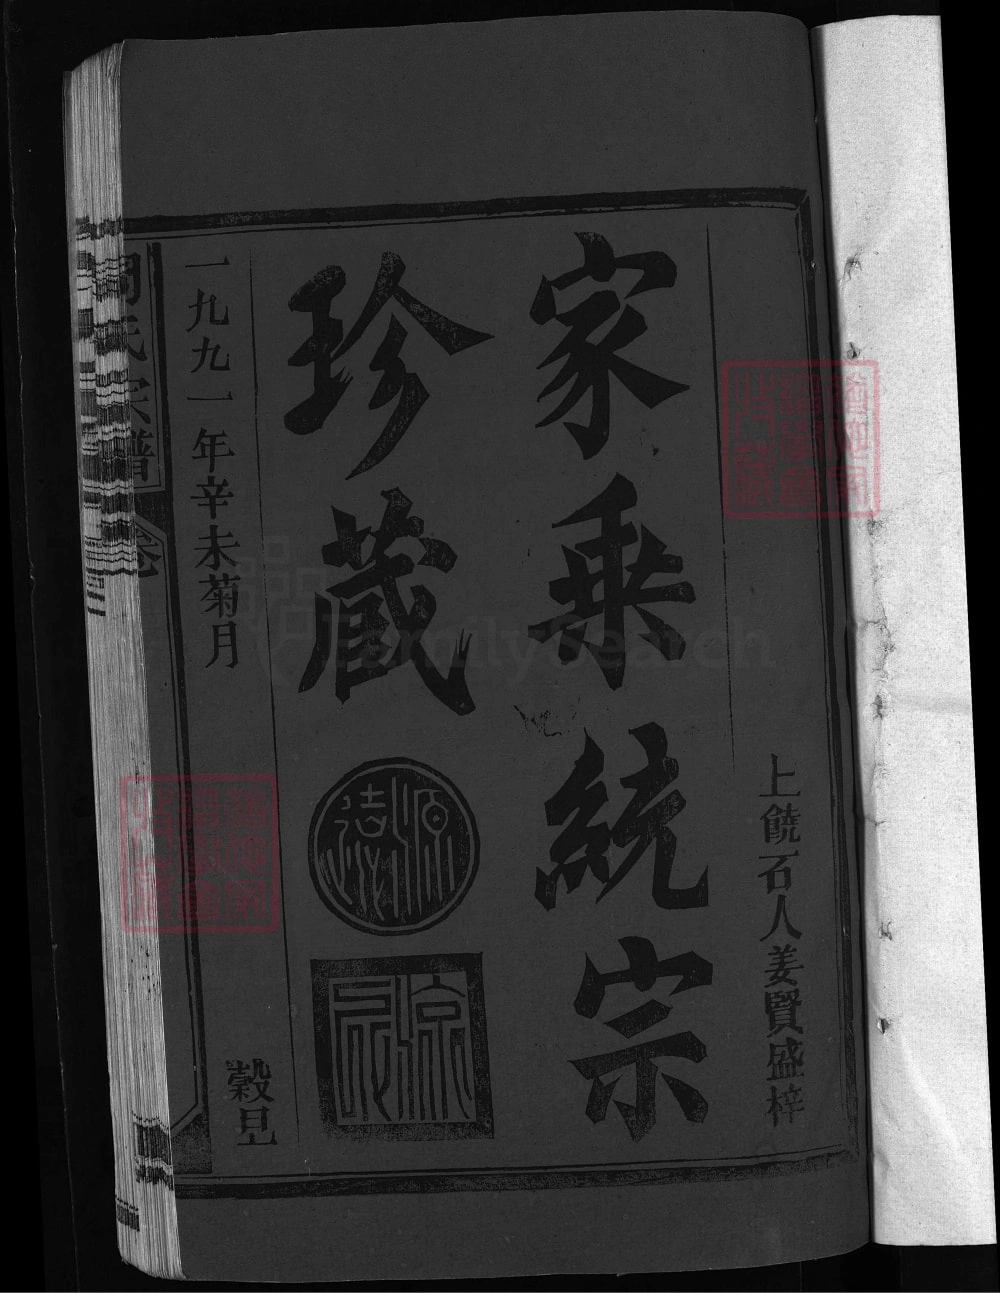 上饒石人姜賢盛梓
家乗統宗
珍蔵
源
一九九一年辛未菊月
穀旦
周氏宗譜
卷
FamilySearch